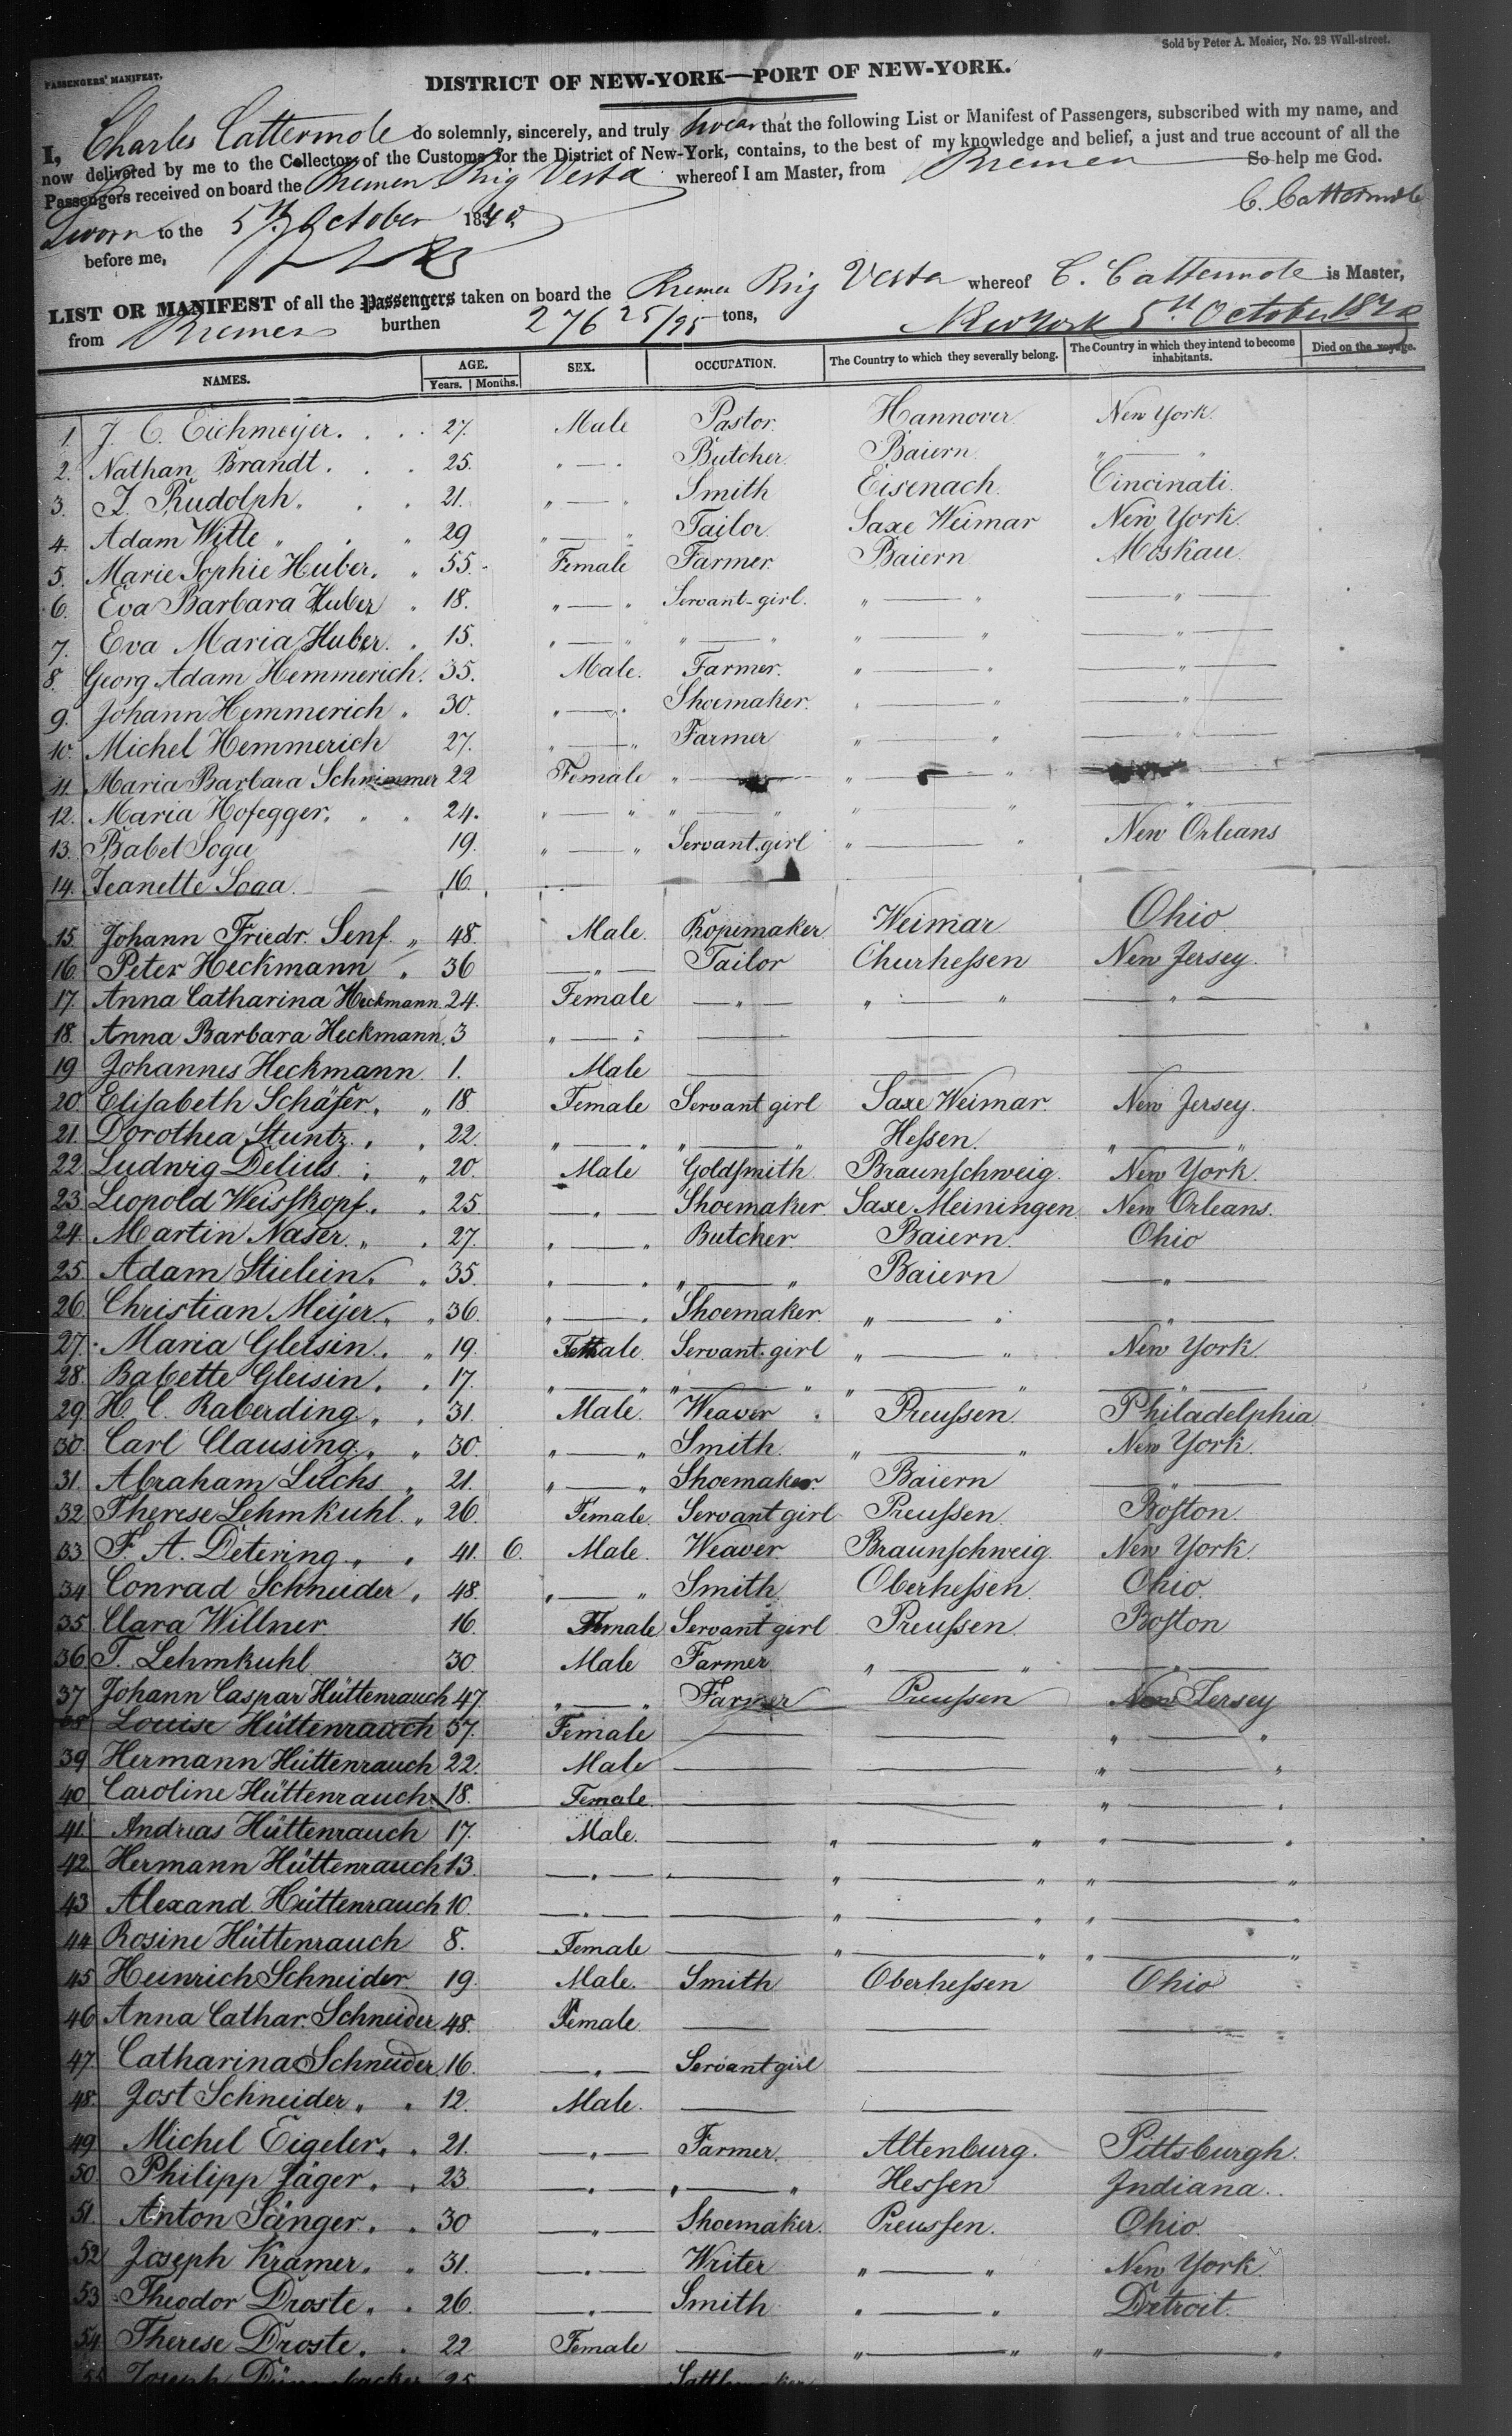 Sold by Peter A. Mesier, No. 28 Wall-street.
PASSENGERS' MANIFEST.
DISTRICT OF NEW-YORK—PORT OF NEW-YORK.
I, Charles Cattermole do solemnly, sincerely, and truly swear that the following List or Manifest of Passengers, subscribed with my name, and
now delivered by me to the Collector of the Customs for the District of New-York, contains, to the best of my knowledge and belief, a just and true account of all the
Passengers received on board the Bremen Brig Vesta whereof I am Master, from Bremen So help me God.
Sworn to the 5th October 1840 C. Cattermole
before me,
LIST OR MANIFEST of all the Passengers taken on board the Bremen Brig Vesta whereof C. Cattermole is Master,
from Bremen burthen 276 25/95 tons, New York 5th October 1840
NAMES. AGE. Years. Months. SEX. OCCUPATION. The Country to which they severally belong. The Country in which they intend to become inhabitants. Died on the voyage.
1. J. C. Eichmeyer. 27. Male Pastor. Hannover. New York.
2. Nathan Brandt. 25. " — " Butcher. Baiern. " — "
3. J. Rudolph. 21. " — " Smith Eisenach. Cincinati.
4. Adam Witte " 29 " — " Tailor. Saxe Weimar New York.
5. Marie Sophie Huber. " 55. Female Farmer. Baiern Moskau.
6. Eva Barbara Huber " 18. " — " Servant-girl. " — " — " —
7. Eva Maria Huber. 15. " — " " — " " — " — " —
8. Georg Adam Hemmerich. 35. Male. Farmer. " — " — " —
9. Johann Hemmerich " 30. " — " Shoemaker. " — " — " —
10. Michel Hemmerich 27. " — " Farmer " — " — " —
11. Maria Barbara Schwimmer 22 Female " — " — "
12. Maria Hofegger. " 24. " — " " — " " — " — " —
13. Babet Soga 19. " — " Servant girl " — " New Orleans
14. Jeanette Soga. 16.
15. Johann Friedr. Senf. " 48. Male. Ropemaker Weimar Ohio
16. Peter Heckmann " 36 — " — Tailor Churhessen New Jersey.
17. Anna Catharina Heckmann 24. Female — " — " — " — " —
18. Anna Barbara Heckmann. 3 " — " — — —
19 Johannes Heckmann. 1. Male — — —
20. Elisabeth Schäfer. " 18 Female Servant girl Saxe Weimar. New Jersey.
21. Dorothea Stuntz. " 22. " — " " — " Hessen. " — "
22. Ludwig Delius. " 20. Male Goldsmith. Braunschweig. New York.
23. Leopold Weisskopf. " 25. — " — Shoemaker Saxe Meiningen. New Orleans.
24. Martin Naser. " 27. " — " Butcher. Baiern. Ohio
25. Adam Stielein. " 35. " — " " — " Baiern — " —
26. Christian Meijer. " 36. " — " Shoemaker. " — " — " —
27. Maria Gleisin. " 19. Female. Servant-girl " — " New York.
28. Babette Gleisin. " 17. " — " " — " " — " — " —
29. H. C. Raberding. " 31. Male. Weaver. Preussen. Philadelphia
30. Carl Clausing. " 30. " — " Smith. " — " New York.
31. Abraham Luchs. " 21. " — " Shoemaker. Baiern — " —
32. Therese Lehmkuhl. " 26. Female. Servant girl Preussen. Boston.
33. F. A. Detering " 41. 6. Male. Weaver. Braunschweig. New York.
34 Conrad Schneider " 48. " — " Smith. Oberhessen. Ohio.
35 Clara Willner. 16. Female Servant girl Preussen. Boston
36 T. Lehmkuhl. 30. Male Farmer. " — " — " —
37 Johann Caspar Hüttenrauch 47. " — " Farmer Preussen New Jersey
38 Louise Hüttenrauch 37. Female — — " — "
39 Hermann Hüttenrauch 22. Male — — " — "
40 Caroline Hüttenrauch 18. Female. — — " — "
41 Andreas Hüttenrauch 17. Male. — " — " " — "
42 Hermann Hüttenrauch 13. — " — — " — " " — "
43 Alexand. Hüttenrauch 10. — " — — " — " " — "
44 Rosine Hüttenrauch 8. Female — " — " " — "
45 Heinrich Schneider 19. Male. Smith Oberhessen Ohio
46 Anna Cathar. Schneider 48. Female. — — —
47 Catharina Schneider 16. — " — Servant girl — —
48. Jost Schneider " 12. Male. — — —
49 Michel Eigeler. " 21. — " — Farmer. Altenburg. Pittsburgh.
50 Philipp Jäger. " 23. — " — " — " Hessen Indiana.
51. Anton Sänger. " 30 — " — Shoemaker. Preussen. Ohio.
52 Joseph Kramer. " 31. — " — Writer " — " New York.
53 Theodor Droste. " 26. — " — Smith " — " Detroit.
54 Therese Droste. " 22 Female — " — " " — "
55 Joseph 25